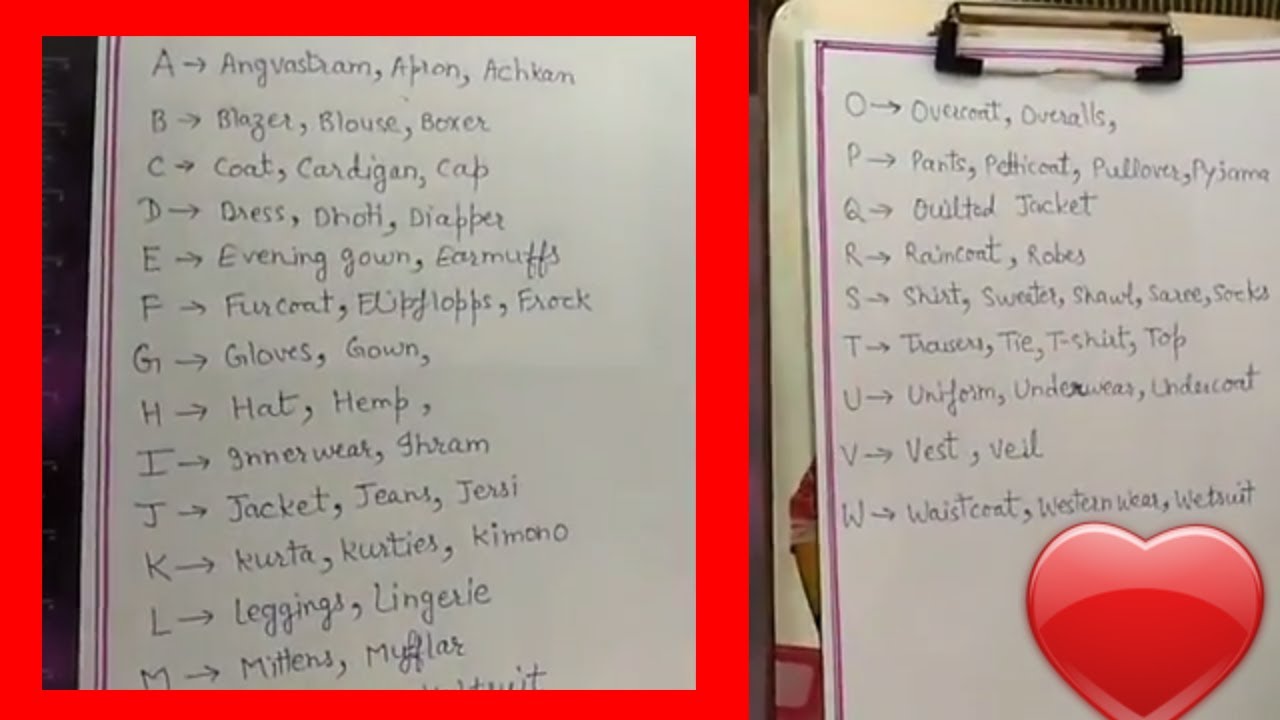 A → Angvastram, Apron, Achkan
B → Blazer, Blouse, Boxer
C → Coat, Cardigan, Cap
D → Dress, Dhoti, Diapper
E → Evening gown, Earmuffs
F → Furcoat, Flipflopps, Frock
G → Gloves, Gown,
H → Hat, Hemp,
I → Innerwear, Ihram
J → Jacket, Jeans, Jersi
K → Kurta, Kurties, Kimono
L → Leggings, Lingerie
M → Mittens, Mufflar
O → Overcoat, Overalls,
P → Pants, Petticoat, Pullover, Pyjama
Q → Quilted Jacket
R → Raincoat, Robes
S → Shirt, Sweater, Shawl, Saree, Socks
T → Trousers, Tie, T-shirt, Top
U → Uniform, Underwear, Undercoat
V → Vest, Veil
W → Waistcoat, Western wear, Wetsuit